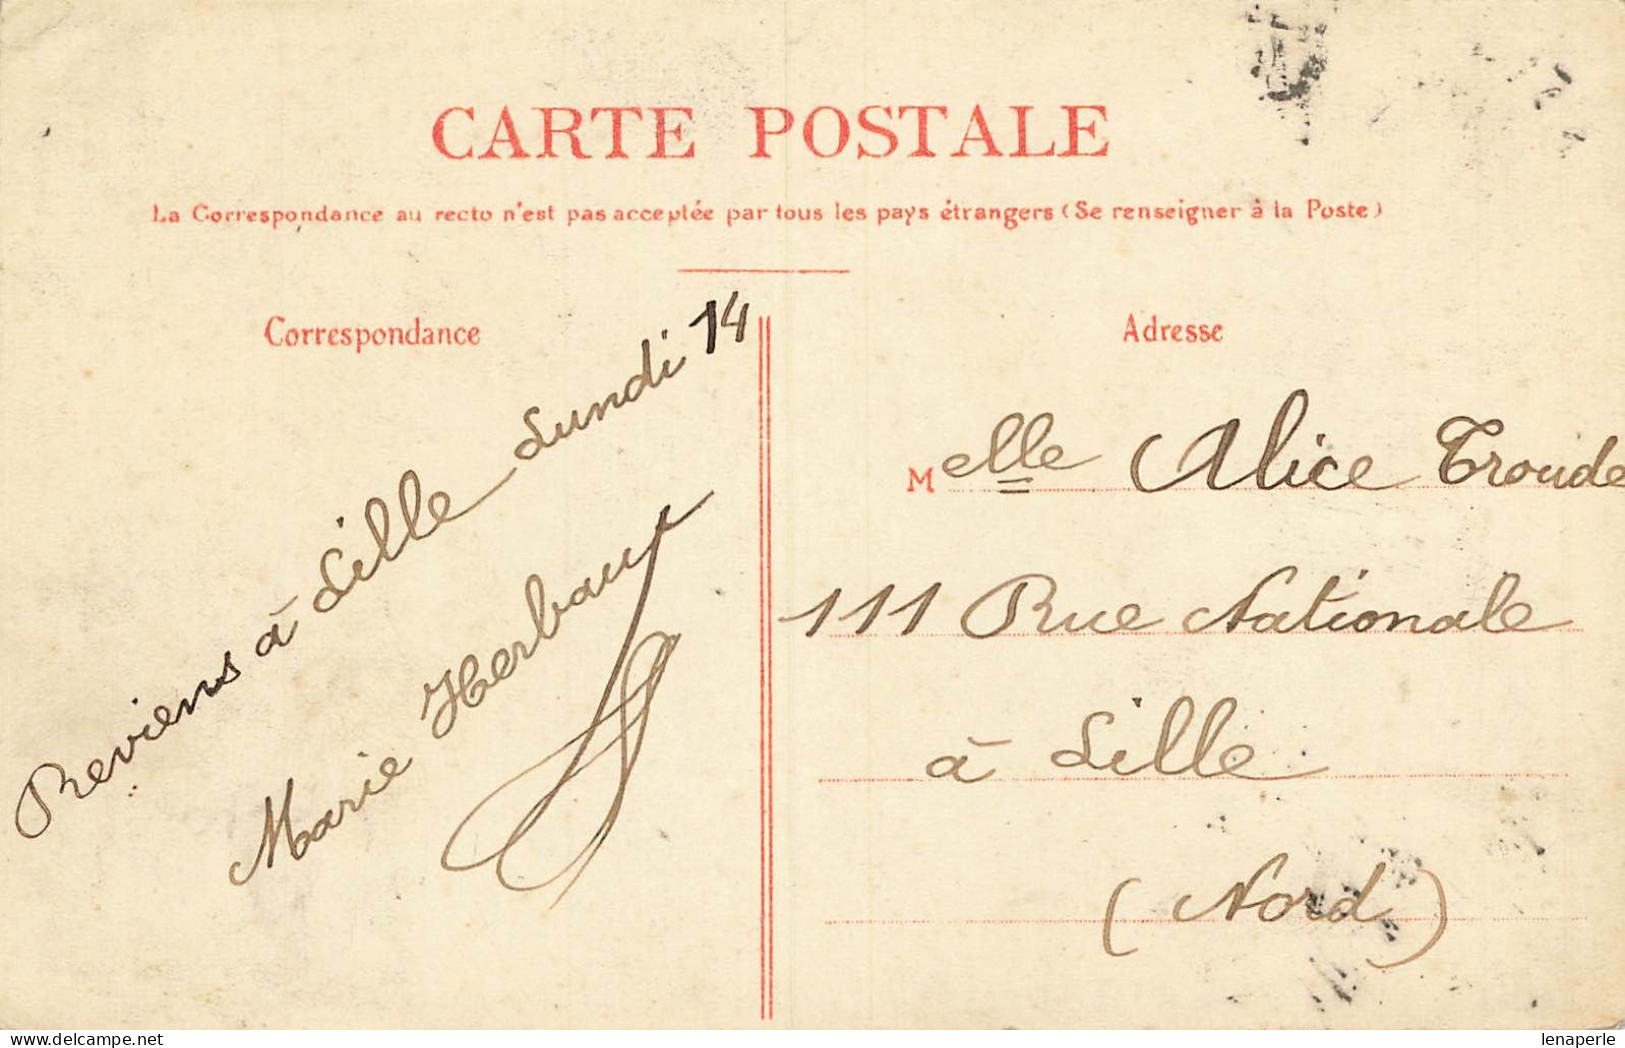 CARTE POSTALE
La Correspondance au recto n'est pas acceptée par tous les pays étrangers (Se renseigner à la Poste)
Correspondance
Reviens à Lille Lundi 14
Marie Herbaux
Adresse
Melle Alice Troude
111 Rue Nationale
à Lille
(Nord)
www.delcampe.net
lenaperle